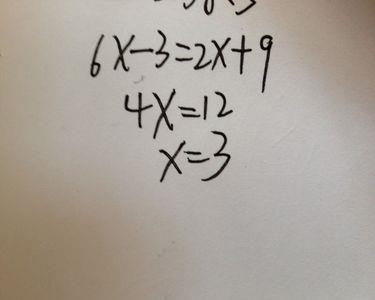 6x-3=2x+9
4x=12
x=3